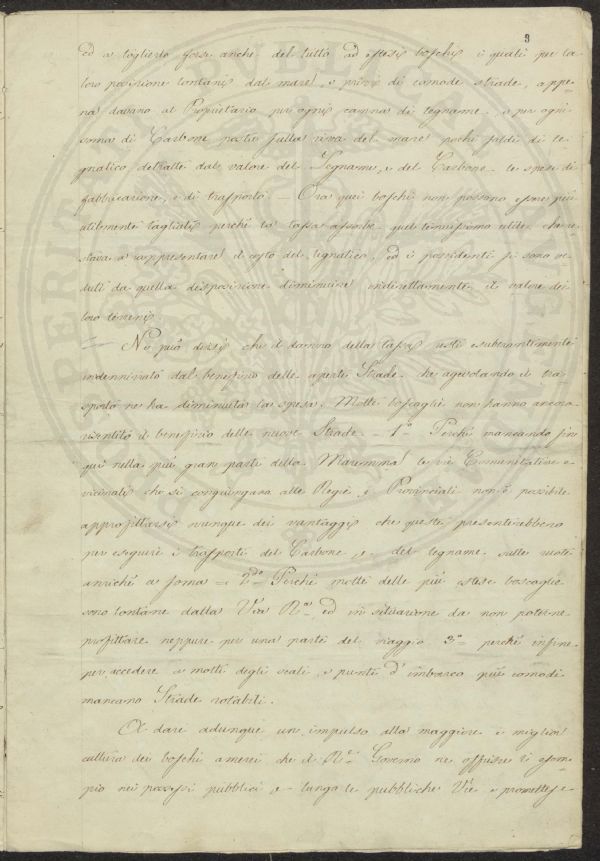 9
ed a toglierlo forse anche del tutto ad estesi boschi i quali per la
loro posizione lontani dal mare, e privi di comode strade, appe=
na davano al Proprietario per ogni canna di legname, o per ogni
soma di Carbone posta sulla riva del mare pochi soldi di le=
gnatico detratti dal valore del Legname, e del Carbone le spese di
fabbricazione, e di trasporto = Ora quei boschi non possono essere più
utilmente tagliati perché la tassa assorbe quel tenuissimo utile che re
stava a rappresentare il costo del legnatico, ed i possidenti si sono ve=
duti da quella disposizione diminuire indirettamente il valore dei
loro terreni.
Né può dirsi che il danno della tassa resti esuberantemente
indennizzato dal benefizio delle aperte Strade che agevolando il tra=
sporto ne ha diminuita la spesa. Molti boscaglie non hanno ancora
risentito il benefizio delle nuove Strade = 1° Perché mancando fin
qui nella più gran parte della Maremma le vie Comunitative e
vicinali che si congiungano alle Regie, e Provinciali non è possibile
approfittarsi ovunque dei vantaggi che queste presenterebbero
per eseguire i trasporti del Carbone, e del legname sulle ruote
anziché a soma = 2do Perché molte delle più estese boscaglie
sono lontane dalla Via Ra. ed in situazione da non poterne
profittare neppure per una parte del viaggio 3° = perché infine
per accedere a molti degli scali, e punti d'imbarco più comodi
mancano Strade rotabili.
A dare adunque un impulso alla maggiore e miglior
cultura dei boschi amerei che il Ro. Governo ne offrisse l'esem=
pio nei possessi pubblici e lungo le pubbliche Vie e promettesse